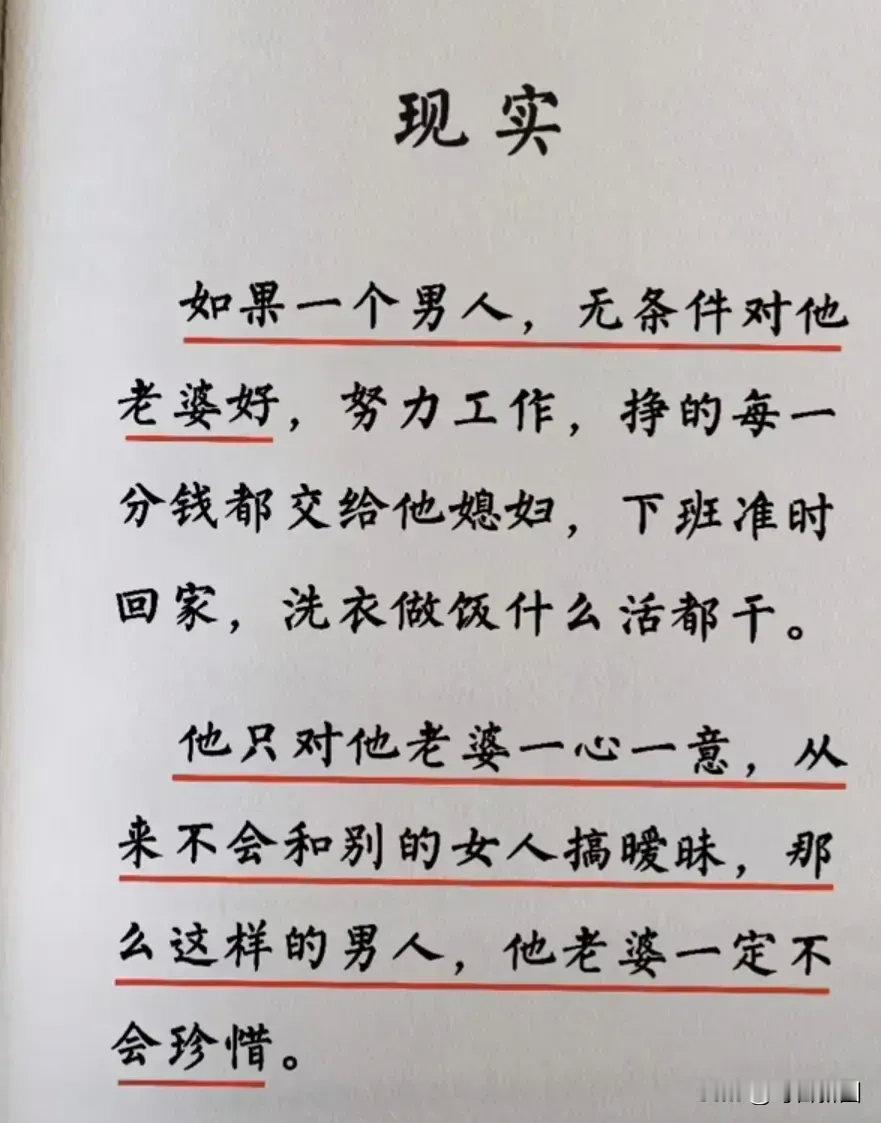 现实
如果一个男人，无条件对他
老婆好，努力工作，挣的每一
分钱都交给他媳妇，下班准时
回家，洗衣做饭什么活都干。
他只对他老婆一心一意，从
来不会和别的女人搞暧昧，那
么这样的男人，他老婆一定不
会珍惜。